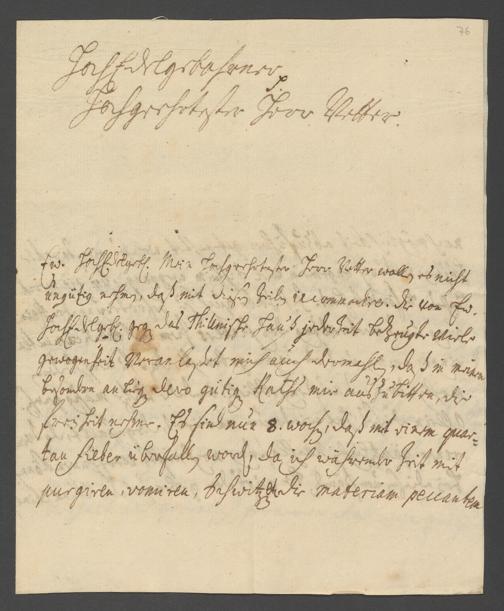 76
HochEdelgebohrner
Hochgeehrtester Herr Vetter.
Ew. HochEdelgeb. Mein Hochgeehrtester Herr Vetter wollen es nicht
ungütig nehmen, daß mit diesen Zeilen incommodire. Die von Ew.
HochEdelgeb. gegen das Haus jederzeit bezeugte viele
gewogenheit veranlaßet mich auch dermahlen, daß in meinem
besondern anlieg. dero gütigen Raths mir auszubitten, die
freiheit nehme. Es sind nun 8. woch, daß mit einem quar-
tan fieber überfallen word, da ich währender Zeit mit
purgiren, vomiren, die materiam peccantem